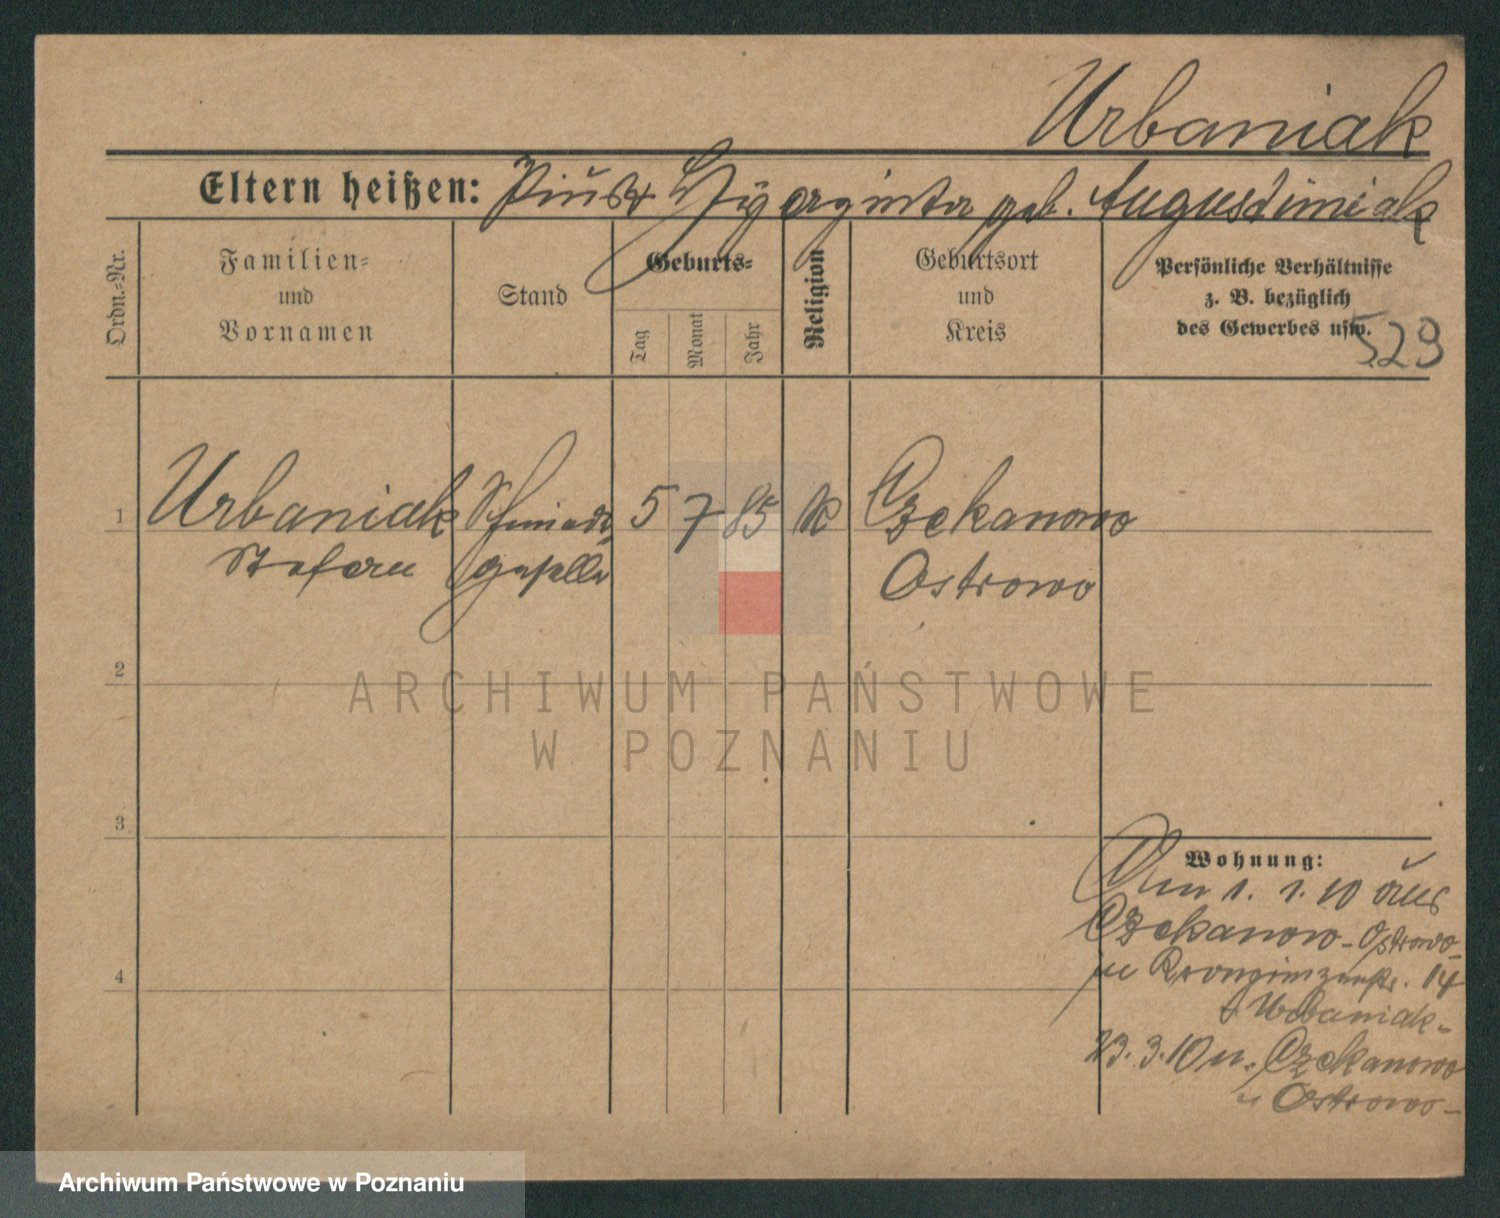 Urbaniak
Eltern heißen: Pius u Hyazinta geb. Augustiniak
Ordn.-Nr.
Familien-
und
Vornamen
Stand
Geburts-
Tag
Monat
Jahr
Religion
Geburtsort
und
Kreis
Persönliche Verhältnisse
z. B. bezüglich
des Gewerbes usw.
529
1
Urbaniak Schmiede 5 7 85 k Czekanowo
Stefan geselle Ostrowo
2
3
4
Wohnung:
1. 1. 10 aus
Czekanowo - Ostrowo -
14
Urbaniak -
23. 3. 10 n. Czekanowo
Ostrowo -
ARCHIWUM PAŃSTWOWE
W POZNANIU
Archiwum Państwowe w Poznaniu